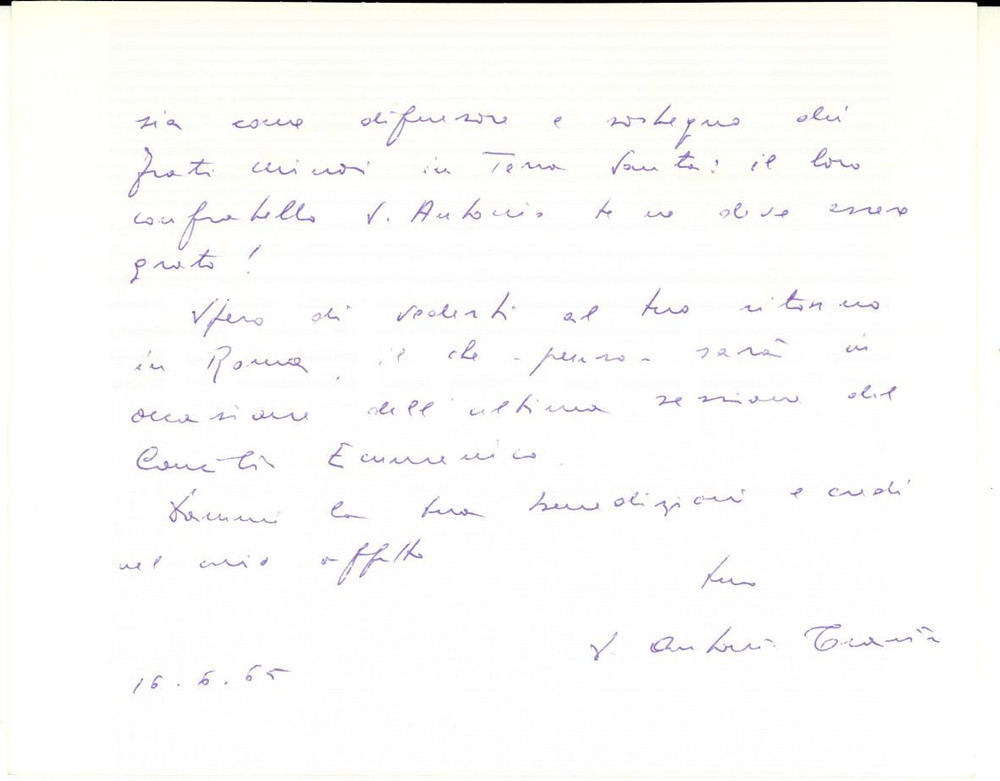 sia come difensore e sostegno dei
Frati Minori in Terra Santa: il loro
confratello S. Antonio te ne deve essere
grato!
Spero di vederti al tuo ritorno
in Roma, il che - penso - sarà in
occasione dell'ultima sessione del
Concilio Ecumenico.
Dammi la tua benedizione e credi
nel mio affetto
tuo
Antonio
16.6.65